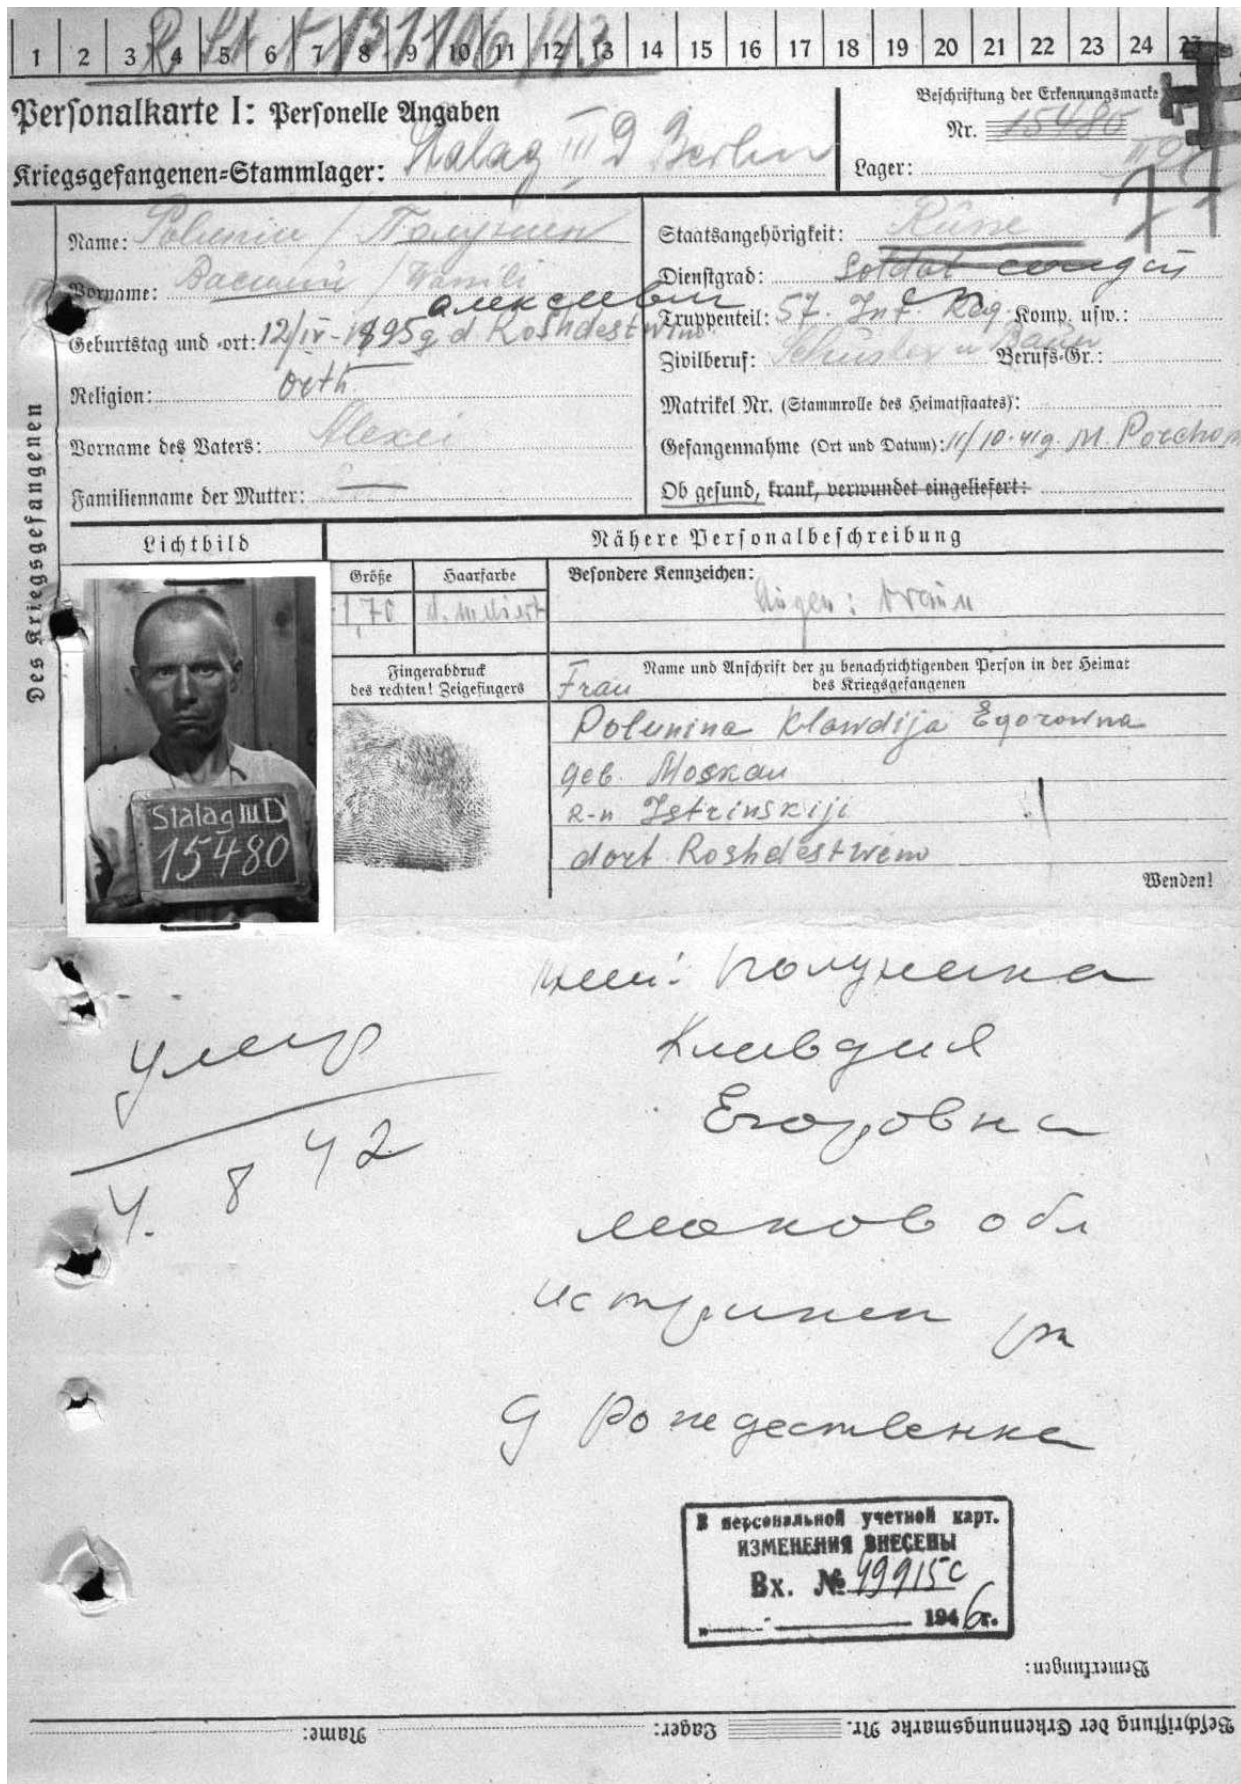 1 2 3 4 5 6 7 8 9 10 11 12 13 14 15 16 17 18 19 20 21 22 23 24 25
Personalkarte I: Personelle Angaben
Kriegsgefangenen-Stammlager: Stalag III D Berlin
Beschriftung der Erkennungsmarke
Nr. 15480
Lager: III D
Des Kriegsgefangenen
Name: Polunin / Полунин
Vorname: Василий / Wassili
алексевич
Geburtstag und -ort: 12/IV-1895 g d Roshdestweno
Religion: orth.
Vorname des Vaters: Alexei
Familienname der Mutter: —
Staatsangehörigkeit: Russe
Dienstgrad: Soldat солдат
Truppenteil: 57. Inf. Reg. Komp. usw.:
Zivilberuf: Schuster u Bauer Berufs-Gr.:
Matrikel Nr. (Stammrolle des Heimatstaates):
Gefangennahme (Ort und Datum): 11/10.41g. M.
Ob gesund, krank, verwundet eingeliefert:
Lichtbild
Nähere Personalbeschreibung
Größe Haarfarbe Besondere Kennzeichen:
1,70 d. meliert Augen: braun
Fingerabdruck
des rechten! Zeigefingers
Name und Anschrift der zu benachrichtigenden Person in der Heimat
des Kriegsgefangenen
Frau
Polunina Klawdija Egorowna
geb. Moskau
R-n Istrinskiji
dort Roshdestweno
Wenden!
Stalag III D
15480
Полунина
Клавдия
Егоровна
умер
4. 8 42
москов обл
истринск рн
д Рождественка
В персональной учетной карт.
ИЗМЕНЕНИЯ ВНЕСЕНЫ
Вх. № 49915с
" " 1946г.
Bemerkungen:
Beschriftung der Erkennungsmarke Nr. Lager: Name: